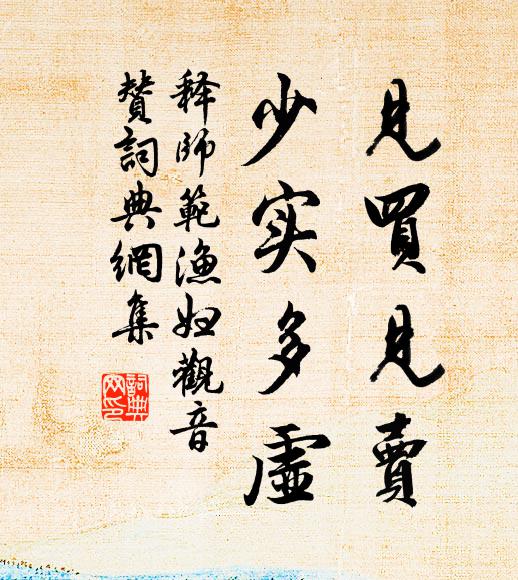 見買見賣
少实多虛
释師範漁婦觀音
賛詞典網集
詞典網印